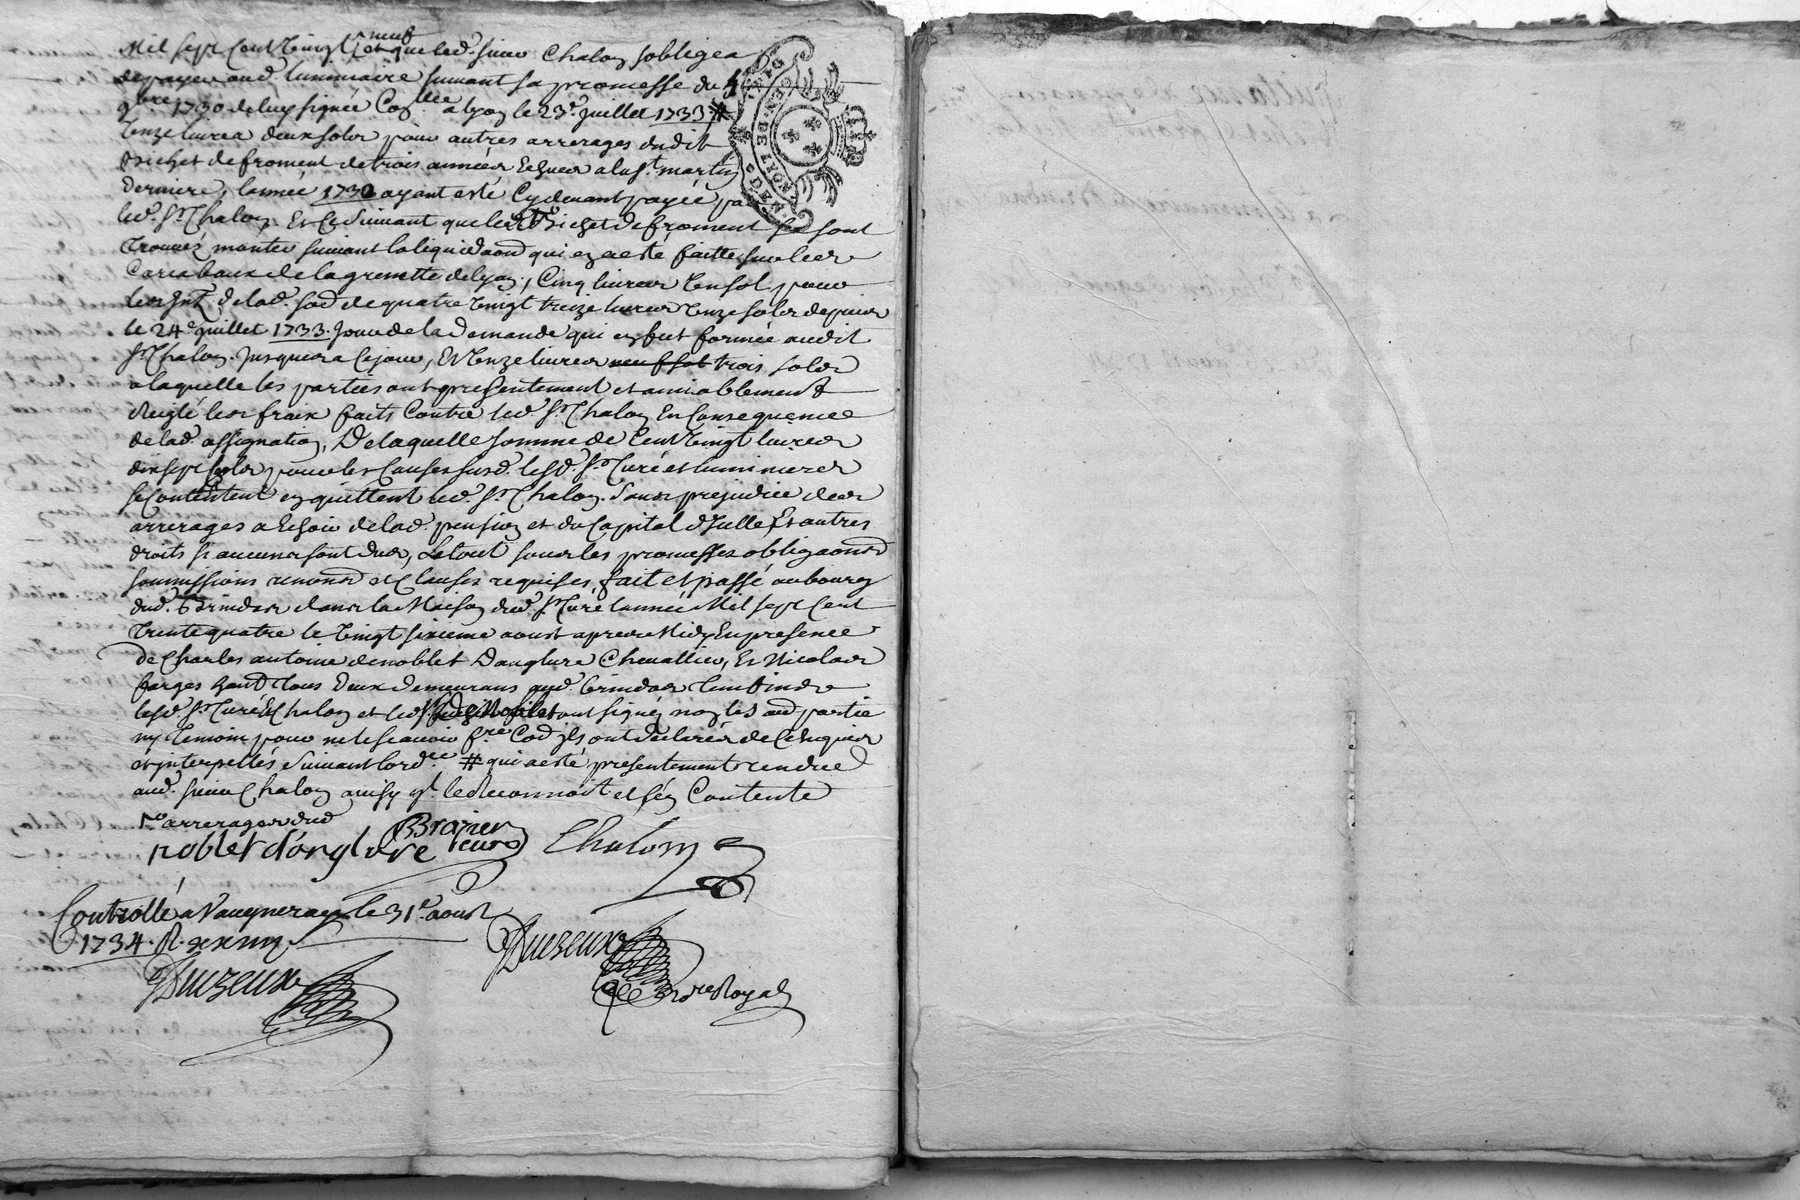 Mil sept Cent vingt neuf et que led. sieur Chalon sobligea
de payer aud. luminaire suivant sa promesse du 4
9bre 1730 de luy signée Coñllée a lyon le 23e. juillet 1733 #
et onze livres deux solz pour autres arrerages dudit
bichet de froment de trois années Echues a la st. martin
derniere, lannée 1730 ayant esté Cydevant payée par
led. Sr. Chalon. Et Ce suivant que lesd. Bichet de froment se sont
trouvez monter suivant la liquidaon qui en a esté faitte sur les
Carcabeaux de la grenette de lyon, Cinq livres un sol pour
les Intz. de lad. somme de quatre vingt treize livres onze solz depuis
le 24e juillet 1733. jour de la demande qui en fut formée audit
Sr. Chalon jusques a Ce jour, Et onze livres neuf sol trois solz
a laquelle les parties ont presentement et amiablement
Reglé les fraix faits Contre led. Sr. Chalon En Consequence
de lad. assignation, De laquelle somme de Cent vingt livres
dix sept solz pour les Causes susd. lesd. Sr. Curé et luminiers
se Contentent en quittent led. Sr. Chalon. Sans prejudice des
arrerages a Echoir de lad. pension et du Capital d'Icelle, Et autres
droits si aucuns sont dus, Le tout sous les promesses obligaons
soumissions renonons et Clauses requises, fait et passé au bourg
dud. Brindas dans la Maison dud. Sr. Curé lannée Mil sept Cent
trente quatre le vingt sixieme aoust apres Midy En presence
de Charles antoine denoblet Danglure Chevallier, Et Nicolas
farges tous deux demeurans aud. brindas temoins
lesd. Sr. Curé Et Chalon et led. Sr. De Noblet ont signé non les aud. partie
ny temoin pour ne le scavoir fre. Cod. ils ont declarés de Ce Enquis
et interpellés Suivant lordce # qui a esté presentement rendue
aud. sieur Chalon ainsy quil le Reconnoit et sen Contente
arrerages dud
noblet d'anglure Brazier curé Chalon
Controllé a Vaugneray le 31e. aoust
1734. R.
Duizeux Duizeux
Nore Royal
GEN. DE LYON